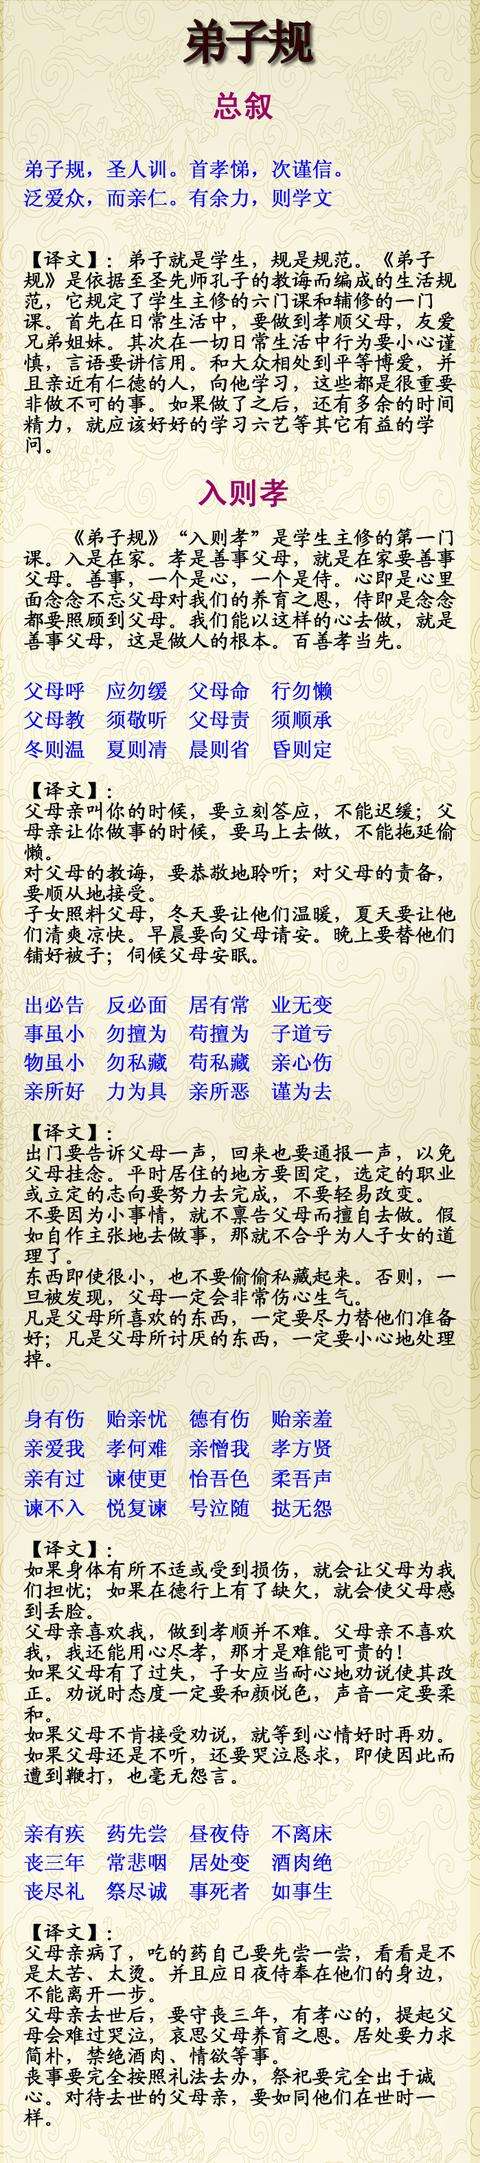 弟子规
总叙
弟子规，圣人训。首孝悌，次谨信。
泛爱众，而亲仁。有余力，则学文
【译文】：弟子就是学生，规是规范。《弟子
规》是依据至圣先师孔子的教诲而编成的生活规
范，它规定了学生主修的六门课和辅修的一门
课。首先在日常生活中，要做到孝顺父母，友爱
兄弟姐妹。其次在一切日常生活中行为要小心谨
慎，言语要讲信用。和大众相处到平等博爱，并
且亲近有仁德的人，向他学习，这些都是很重要
非做不可的事。如果做了之后，还有多余的时间
精力，就应该好好的学习六艺等其它有益的学
问。
入则孝
《弟子规》“入则孝”是学生主修的第一门
课。入是在家。孝是善事父母，就是在家要善事
父母。善事，一个是心，一个是侍。心即是心里
面念念不忘父母对我们的养育之恩，侍即是念念
都要照顾到父母。我们能以这样的心去做，就是
善事父母，这是做人的根本。百善孝当先。
父母呼　应勿缓　父母命　行勿懒
父母教　须敬听　父母责　须顺承
冬则温　夏则凊　晨则省　昏则定
【译文】：
父母亲叫你的时候，要立刻答应，不能迟缓；父
母亲让你做事的时候，要马上去做，不能拖延偷
懒。
对父母的教诲，要恭敬地聆听；对父母的责备，
要顺从地接受。
子女照料父母，冬天要让他们温暖，夏天要让他
们清爽凉快。早晨要向父母请安。晚上要替他们
铺好被子；伺候父母安眠。
出必告　反必面　居有常　业无变
事虽小　勿擅为　苟擅为　子道亏
物虽小　勿私藏　苟私藏　亲心伤
亲所好　力为具　亲所恶　谨为去
【译文】：
出门要告诉父母一声，回来也要通报一声，以免
父母挂念。平时居住的地方要固定，选定的职业
或立定的志向要努力去完成，不要轻易改变。
不要因为小事情，就不禀告父母而擅自去做。假
如自作主张地去做事，那就不合乎为人子女的道
理了。
东西即使很小，也不要偷偷私藏起来。否则，一
旦被发现，父母一定会非常伤心生气。
凡是父母所喜欢的东西，一定要尽力替他们准备
好；凡是父母所讨厌的东西，一定要小心地处理
掉。
身有伤　贻亲忧　德有伤　贻亲羞
亲爱我　孝何难　亲憎我　孝方贤
亲有过　谏使更　怡吾色　柔吾声
谏不入　悦复谏　号泣随　挞无怨
【译文】：
如果身体有所不适或受到损伤，就会让父母为我
们担忧；如果在德行上有了缺欠，就会使父母感
到丢脸。
父母亲喜欢我，做到孝顺并不难。父母亲不喜欢
我，我还能用心尽孝，那才是难能可贵的！
如果父母有了过失，子女应当耐心地劝说使其改
正。劝说时态度一定要和颜悦色，声音一定要柔
和。
如果父母不肯接受劝说，就等到心情好时再劝。
如果父母还是不听，还要哭泣恳求，即使因此而
遭到鞭打，也毫无怨言。
亲有疾　药先尝　昼夜侍　不离床
丧三年　常悲咽　居处变　酒肉绝
丧尽礼　祭尽诚　事死者　如事生
【译文】：
父母亲病了，吃的药自己要先尝一尝，看看是不
是太苦、太烫。并且应日夜侍奉在他们的身边，
不能离开一步。
父母亲去世后，要守丧三年，有孝心的，提起父
母会难过哭泣，哀思父母养育之恩。居处要力求
简朴，禁绝酒肉、情欲等事。
丧事要完全按照礼法去办，祭祀要完全出于诚
心。对待去世的父母亲，要如同他们在世时一
样。